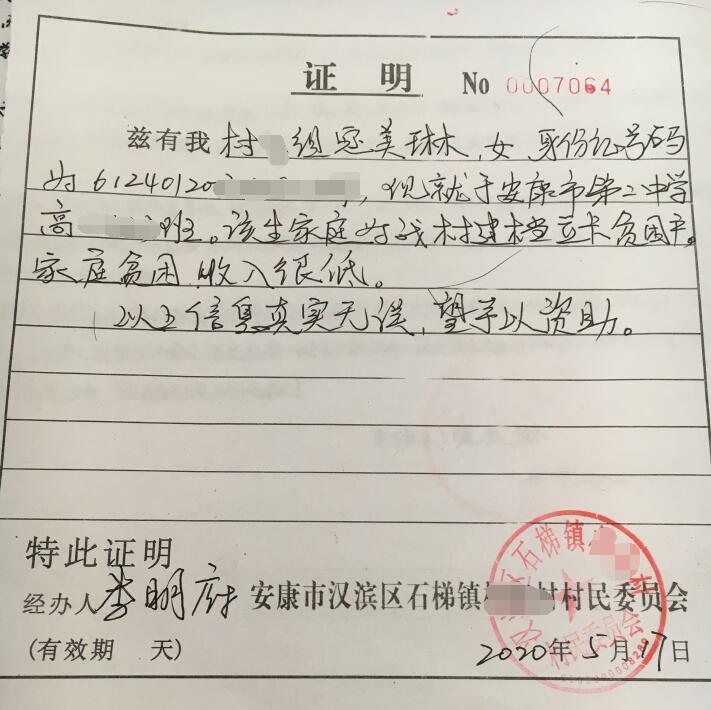 证 明 No 0007064
兹有我村 组寇美琳,女,身份证号码
为61240120 ,现就于安康市第二中学
高 班。该生家庭为我村建档立卡贫困户。
家庭贫困,收入很低。
以上信息真实无误,望予以资助。
特此证明
经办人 李明 安康市汉滨区石梯镇 村村民委员会
(有效期 天) 2020年5月17日
汉滨区石梯镇
村民委员会